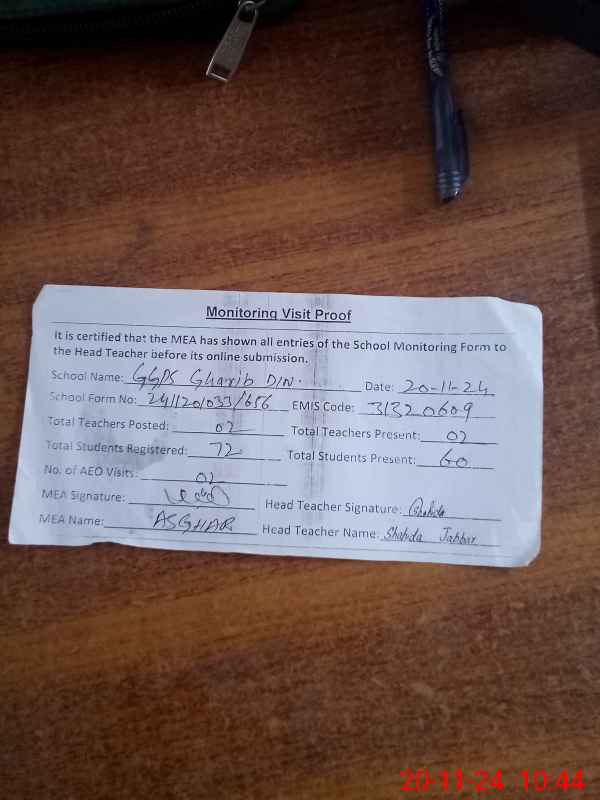 Monitoring Visit Proof
It is certified that the MEA has shown all entries of the School Monitoring Form to
the Head Teacher before its online submission.
School Name: GGPS Gharib DIN. Date: 20-11-24
School Form No: 241120/033/656 EMIS Code: 31320609
Total Teachers Posted: 02 Total Teachers Present: 02
Total Students Registered: 72 Total Students Present: 60
No. of AEO Visits: 02
MEA Signature: Head Teacher Signature: Shahida
MEA Name: ASGHAR Head Teacher Name: Shahida Jabbar
20-11-24 10:44